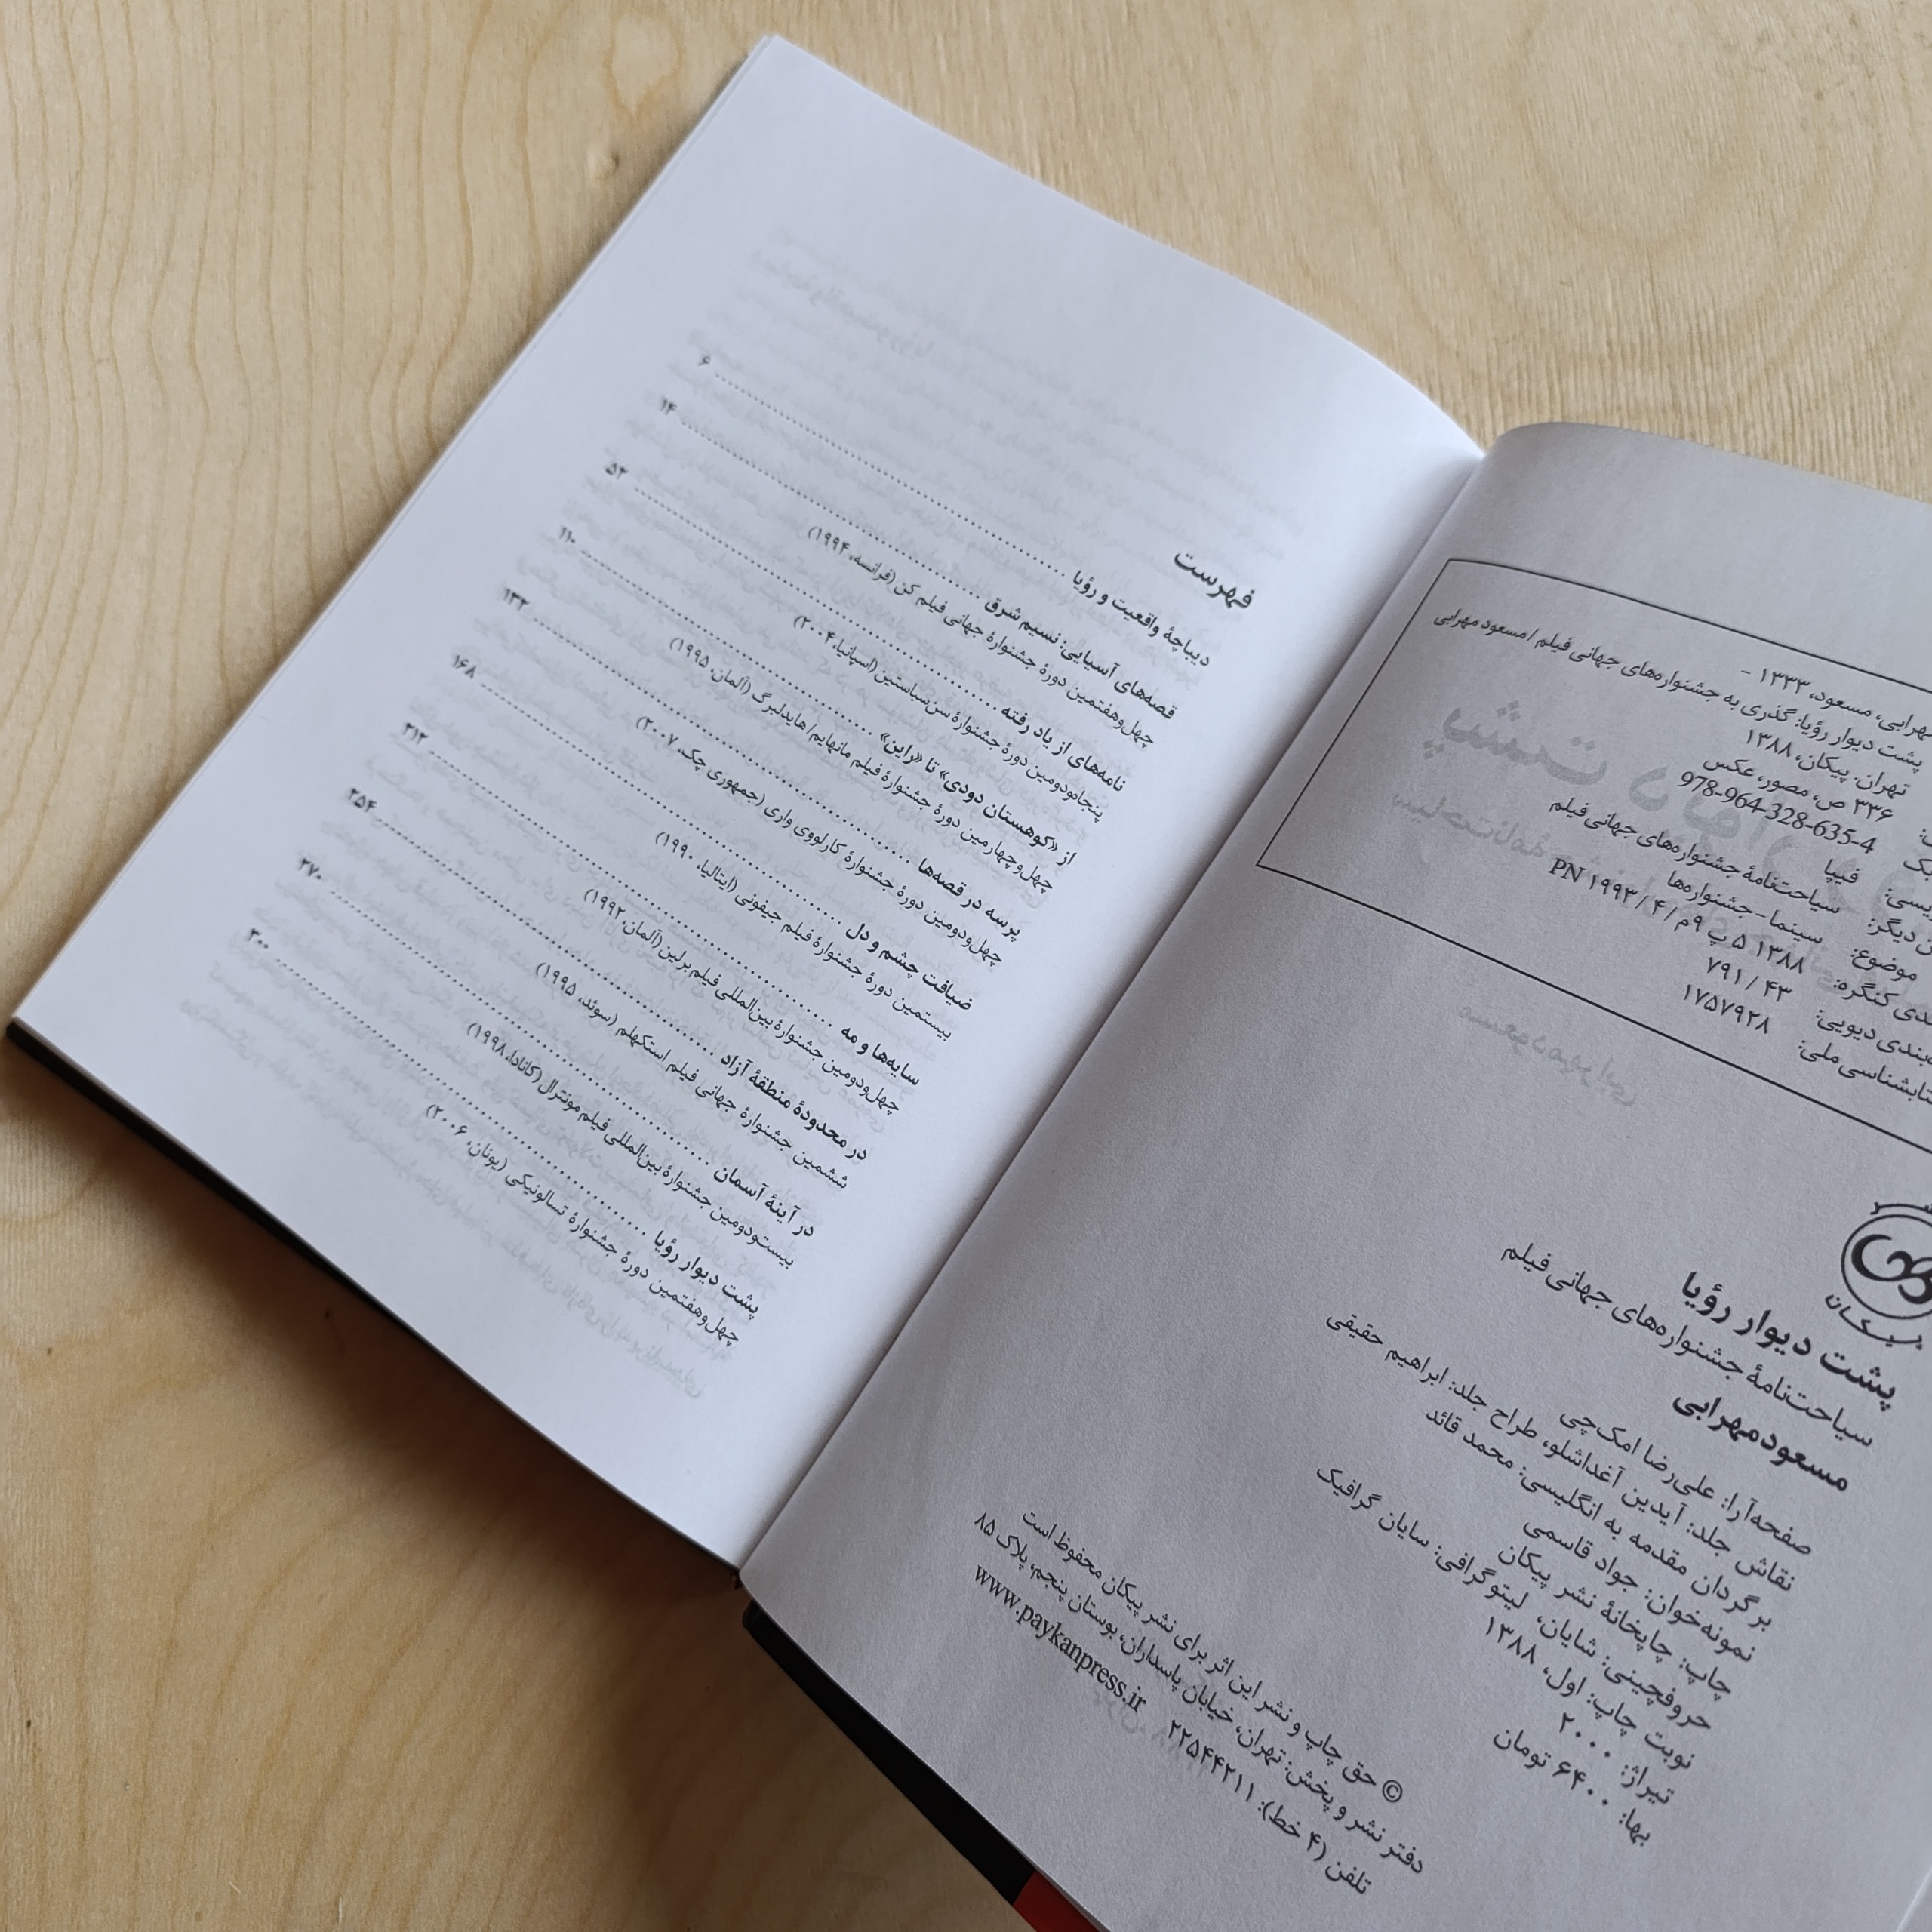 مهرابی، مسعود، ۱۳۳۳ -
پشت دیوار رؤیا: گذری به جشنواره‌های جهانی فیلم / مسعود مهرابی
تهران. پیکان، ۱۳۸۸
۳۳۶ ص، مصور، عکس
978-964-328-635-4
فیپا
سیاحت‌نامۀ جشنواره‌های جهانی فیلم
موضوع: سینما - جشنواره‌ها
کنگره: ۱۳۸۸ ۵ پ ۹م / ۴ / ۱۹۹۳ PN
دیویی: ۴۳ / ۷۹۱
ملی: ۱۷۵۷۹۲۸
پیکان
پشت دیوار رؤیا
سیاحت‌نامۀ جشنواره‌های جهانی فیلم
مسعود مهرابی
صفحه‌آرا: علی‌رضا امک‌چی
نقاش جلد: آیدین آغداشلو، طراح جلد: ابراهیم حقیقی
برگردان مقدمه به انگلیسی: محمد قائد
نمونه‌خوان: جواد قاسمی
چاپ: چاپخانۀ نشر پیکان
حروفچینی: شایان، لیتوگرافی: سایان گرافیک
نوبت چاپ: اول، ۱۳۸۸
تیراژ: ۲۰۰۰
بها: ۶۴۰۰ تومان
© حق چاپ و نشر این اثر برای نشر پیکان محفوظ است
دفتر نشر و پخش: تهران، خیابان پاسداران، بوستان پنجم، پلاک ۸۵
تلفن (۴ خط): ۲۲۵۴۴۲۱۱ www.paykanpress.ir
فهرست
دیباچۀ واقعیت و رؤیا ........ ۶
قصه‌های آسیایی: نسیم شرق ........ ۱۴
چهل‌و‌هفتمین دورۀ جشنوارۀ جهانی فیلم کن (فرانسه، ۱۹۹۴)
نامه‌های از یاد رفته ........ ۵۲
پنجاه‌ودومین دورۀ جشنوارۀ سن‌سباستین (اسپانیا، ۲۰۰۴)
از «کوهستان دودی» تا «راین» ........ ۱۱۰
چهل‌و‌چهارمین دورۀ جشنوارۀ فیلم مانهایم/هایدلبرگ (آلمان، ۱۹۹۵)
پرسه در قصه‌ها ........ ۱۳۲
چهل‌و‌دومین دورۀ جشنوارۀ کارلووی واری (جمهوری چک، ۲۰۰۷)
ضیافت چشم و دل ........ ۱۶۸
بیستمین دورۀ جشنوارۀ فیلم جیفونی (ایتالیا، ۱۹۹۰)
سایه‌ها و مه ........ ۲۱۲
چهل‌و‌دومین جشنوارۀ بین‌المللی فیلم برلین (آلمان، ۱۹۹۲)
در محدودۀ منطقۀ آزاد ........ ۲۵۴
ششمین جشنوارۀ جهانی فیلم استکهلم (سوئد، ۱۹۹۵)
در آینۀ آسمان ........ ۲۷۰
بیست‌و‌دومین جشنوارۀ بین‌المللی فیلم مونترال (کانادا، ۱۹۹۸)
پشت دیوار رؤیا ........ ۳۰۰
چهل‌و‌هفتمین دورۀ جشنوارۀ تسالونیکی (یونان، ۲۰۰۶)